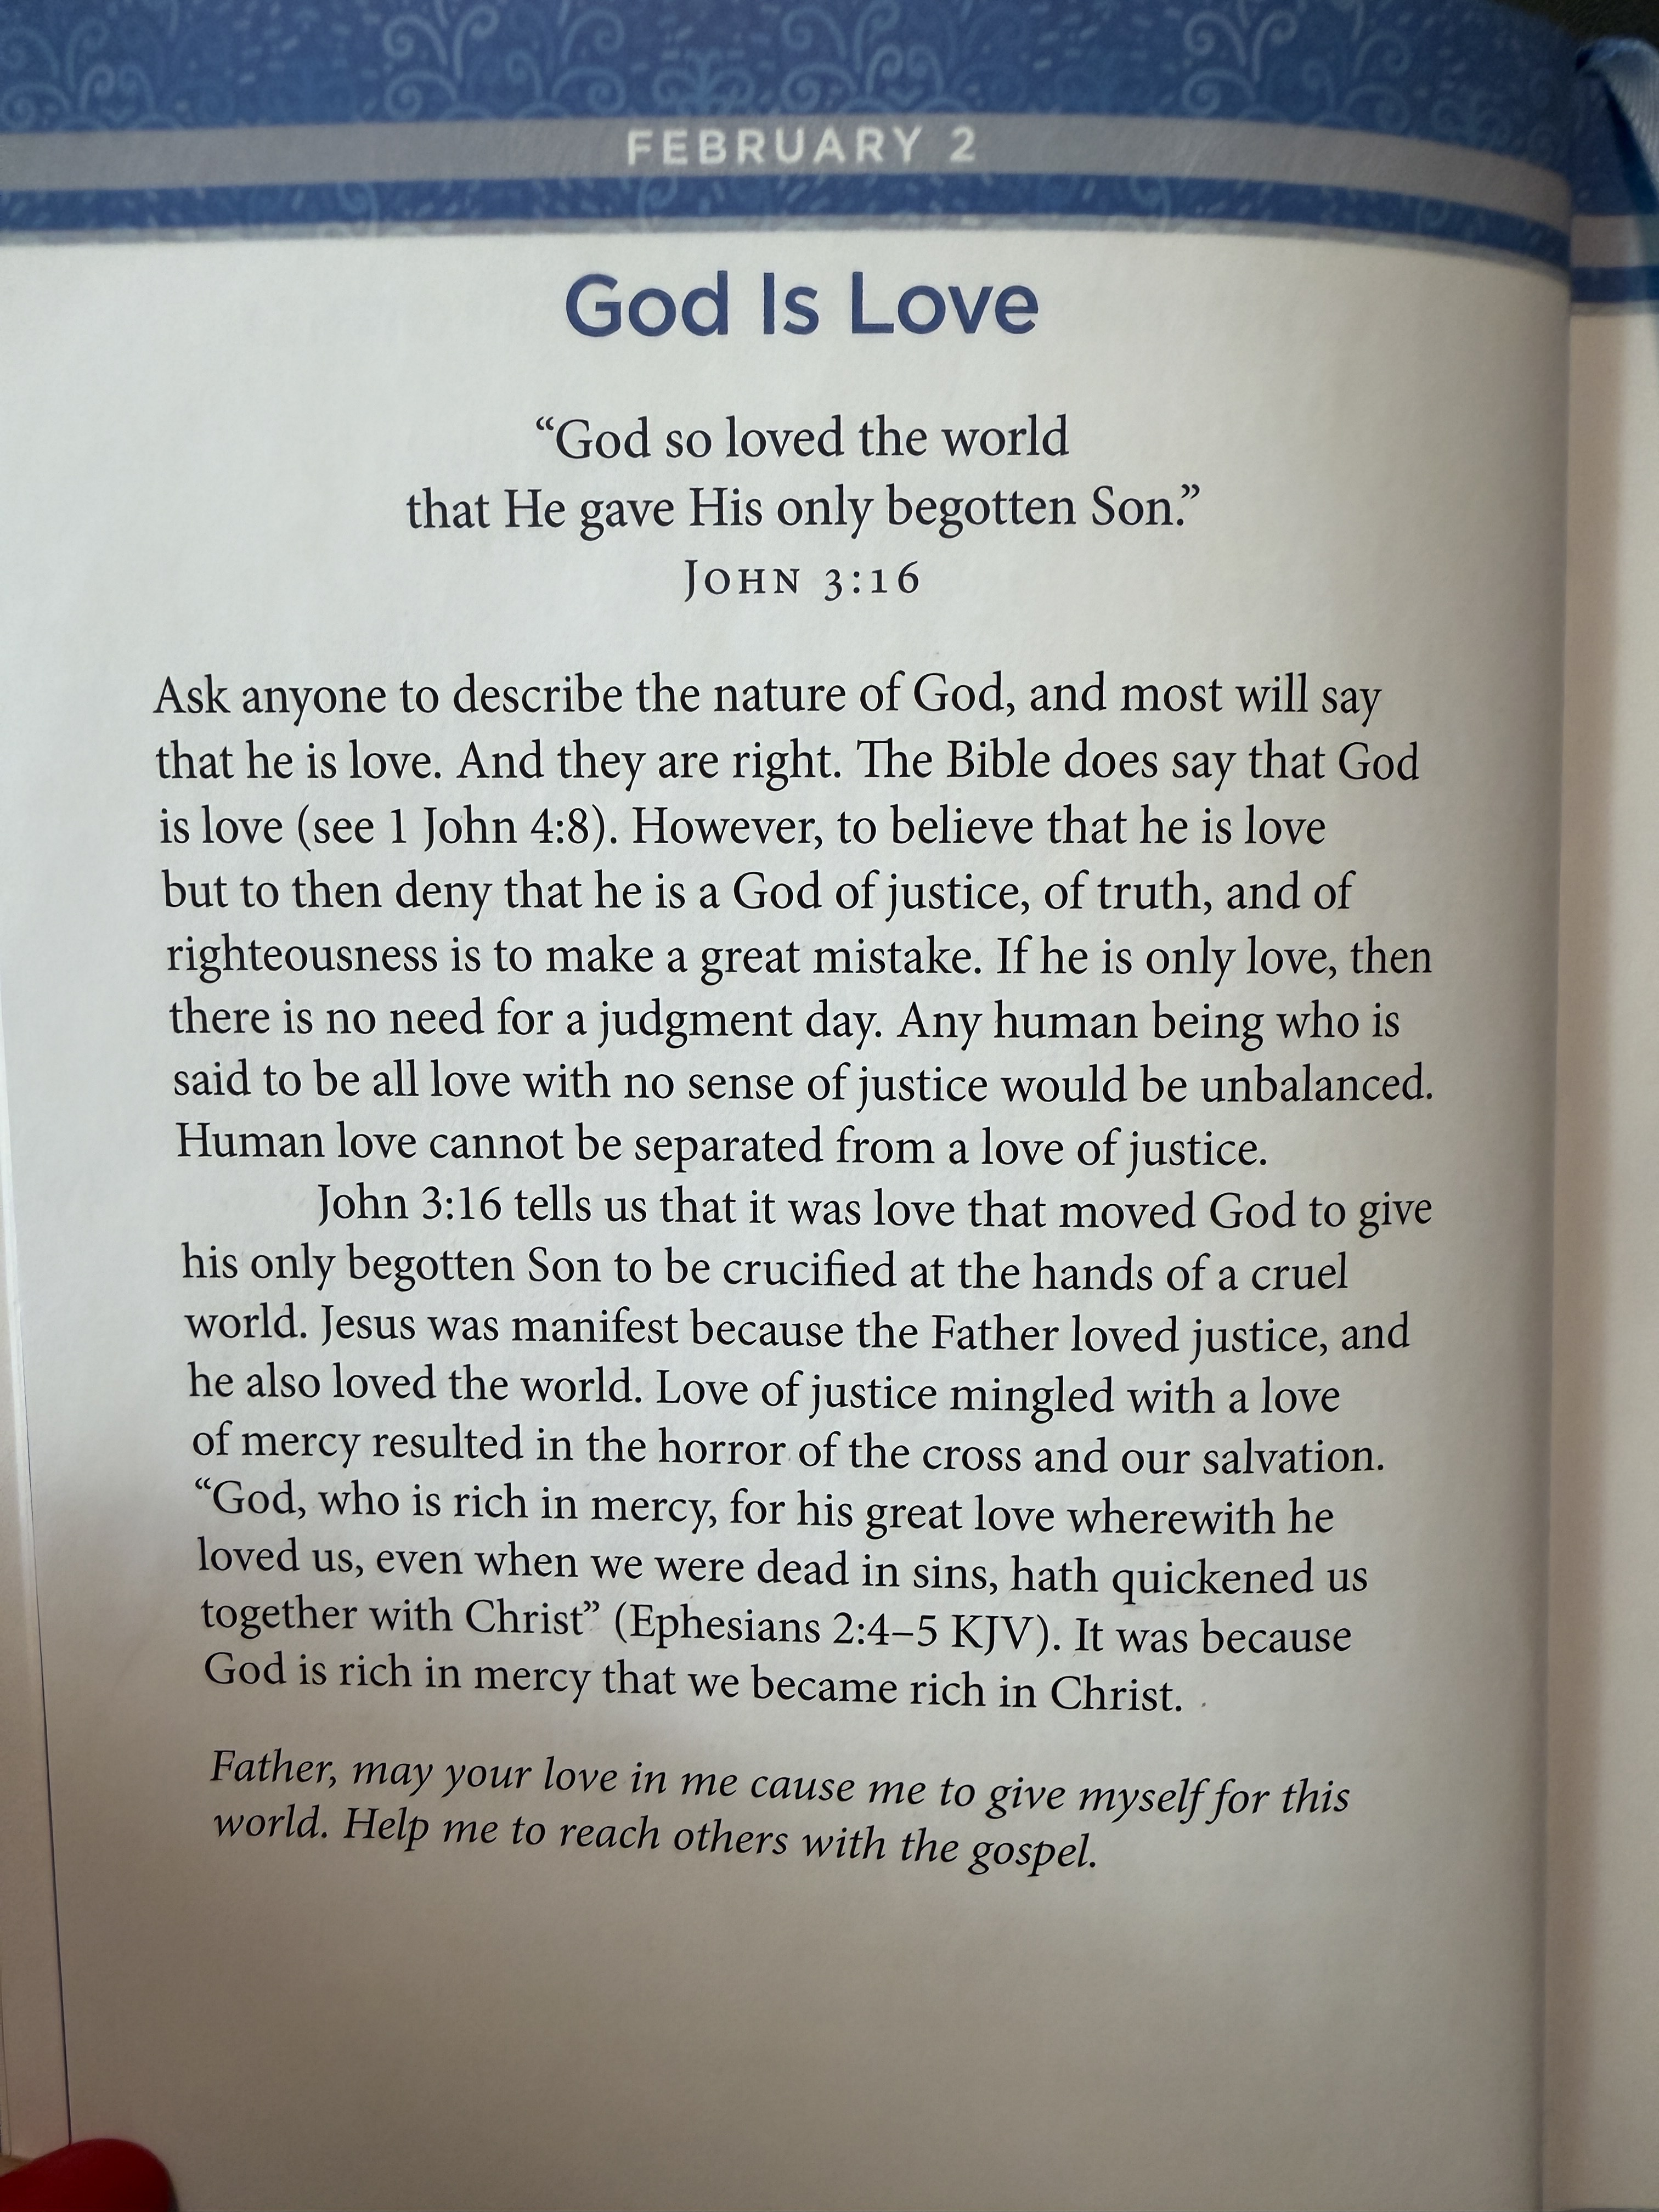 FEBRUARY 2
God Is Love
“God so loved the world
that He gave His only begotten Son.”
JOHN 3:16
Ask anyone to describe the nature of God, and most will say
that he is love. And they are right. The Bible does say that God
is love (see 1 John 4:8). However, to believe that he is love
but to then deny that he is a God of justice, of truth, and of
righteousness is to make a great mistake. If he is only love, then
there is no need for a judgment day. Any human being who is
said to be all love with no sense of justice would be unbalanced.
Human love cannot be separated from a love of justice.
John 3:16 tells us that it was love that moved God to give
his only begotten Son to be crucified at the hands of a cruel
world. Jesus was manifest because the Father loved justice, and
he also loved the world. Love of justice mingled with a love
of mercy resulted in the horror of the cross and our salvation.
“God, who is rich in mercy, for his great love wherewith he
loved us, even when we were dead in sins, hath quickened us
together with Christ” (Ephesians 2:4–5 KJV). It was because
God is rich in mercy that we became rich in Christ.
Father, may your love in me cause me to give myself for this
world. Help me to reach others with the gospel.